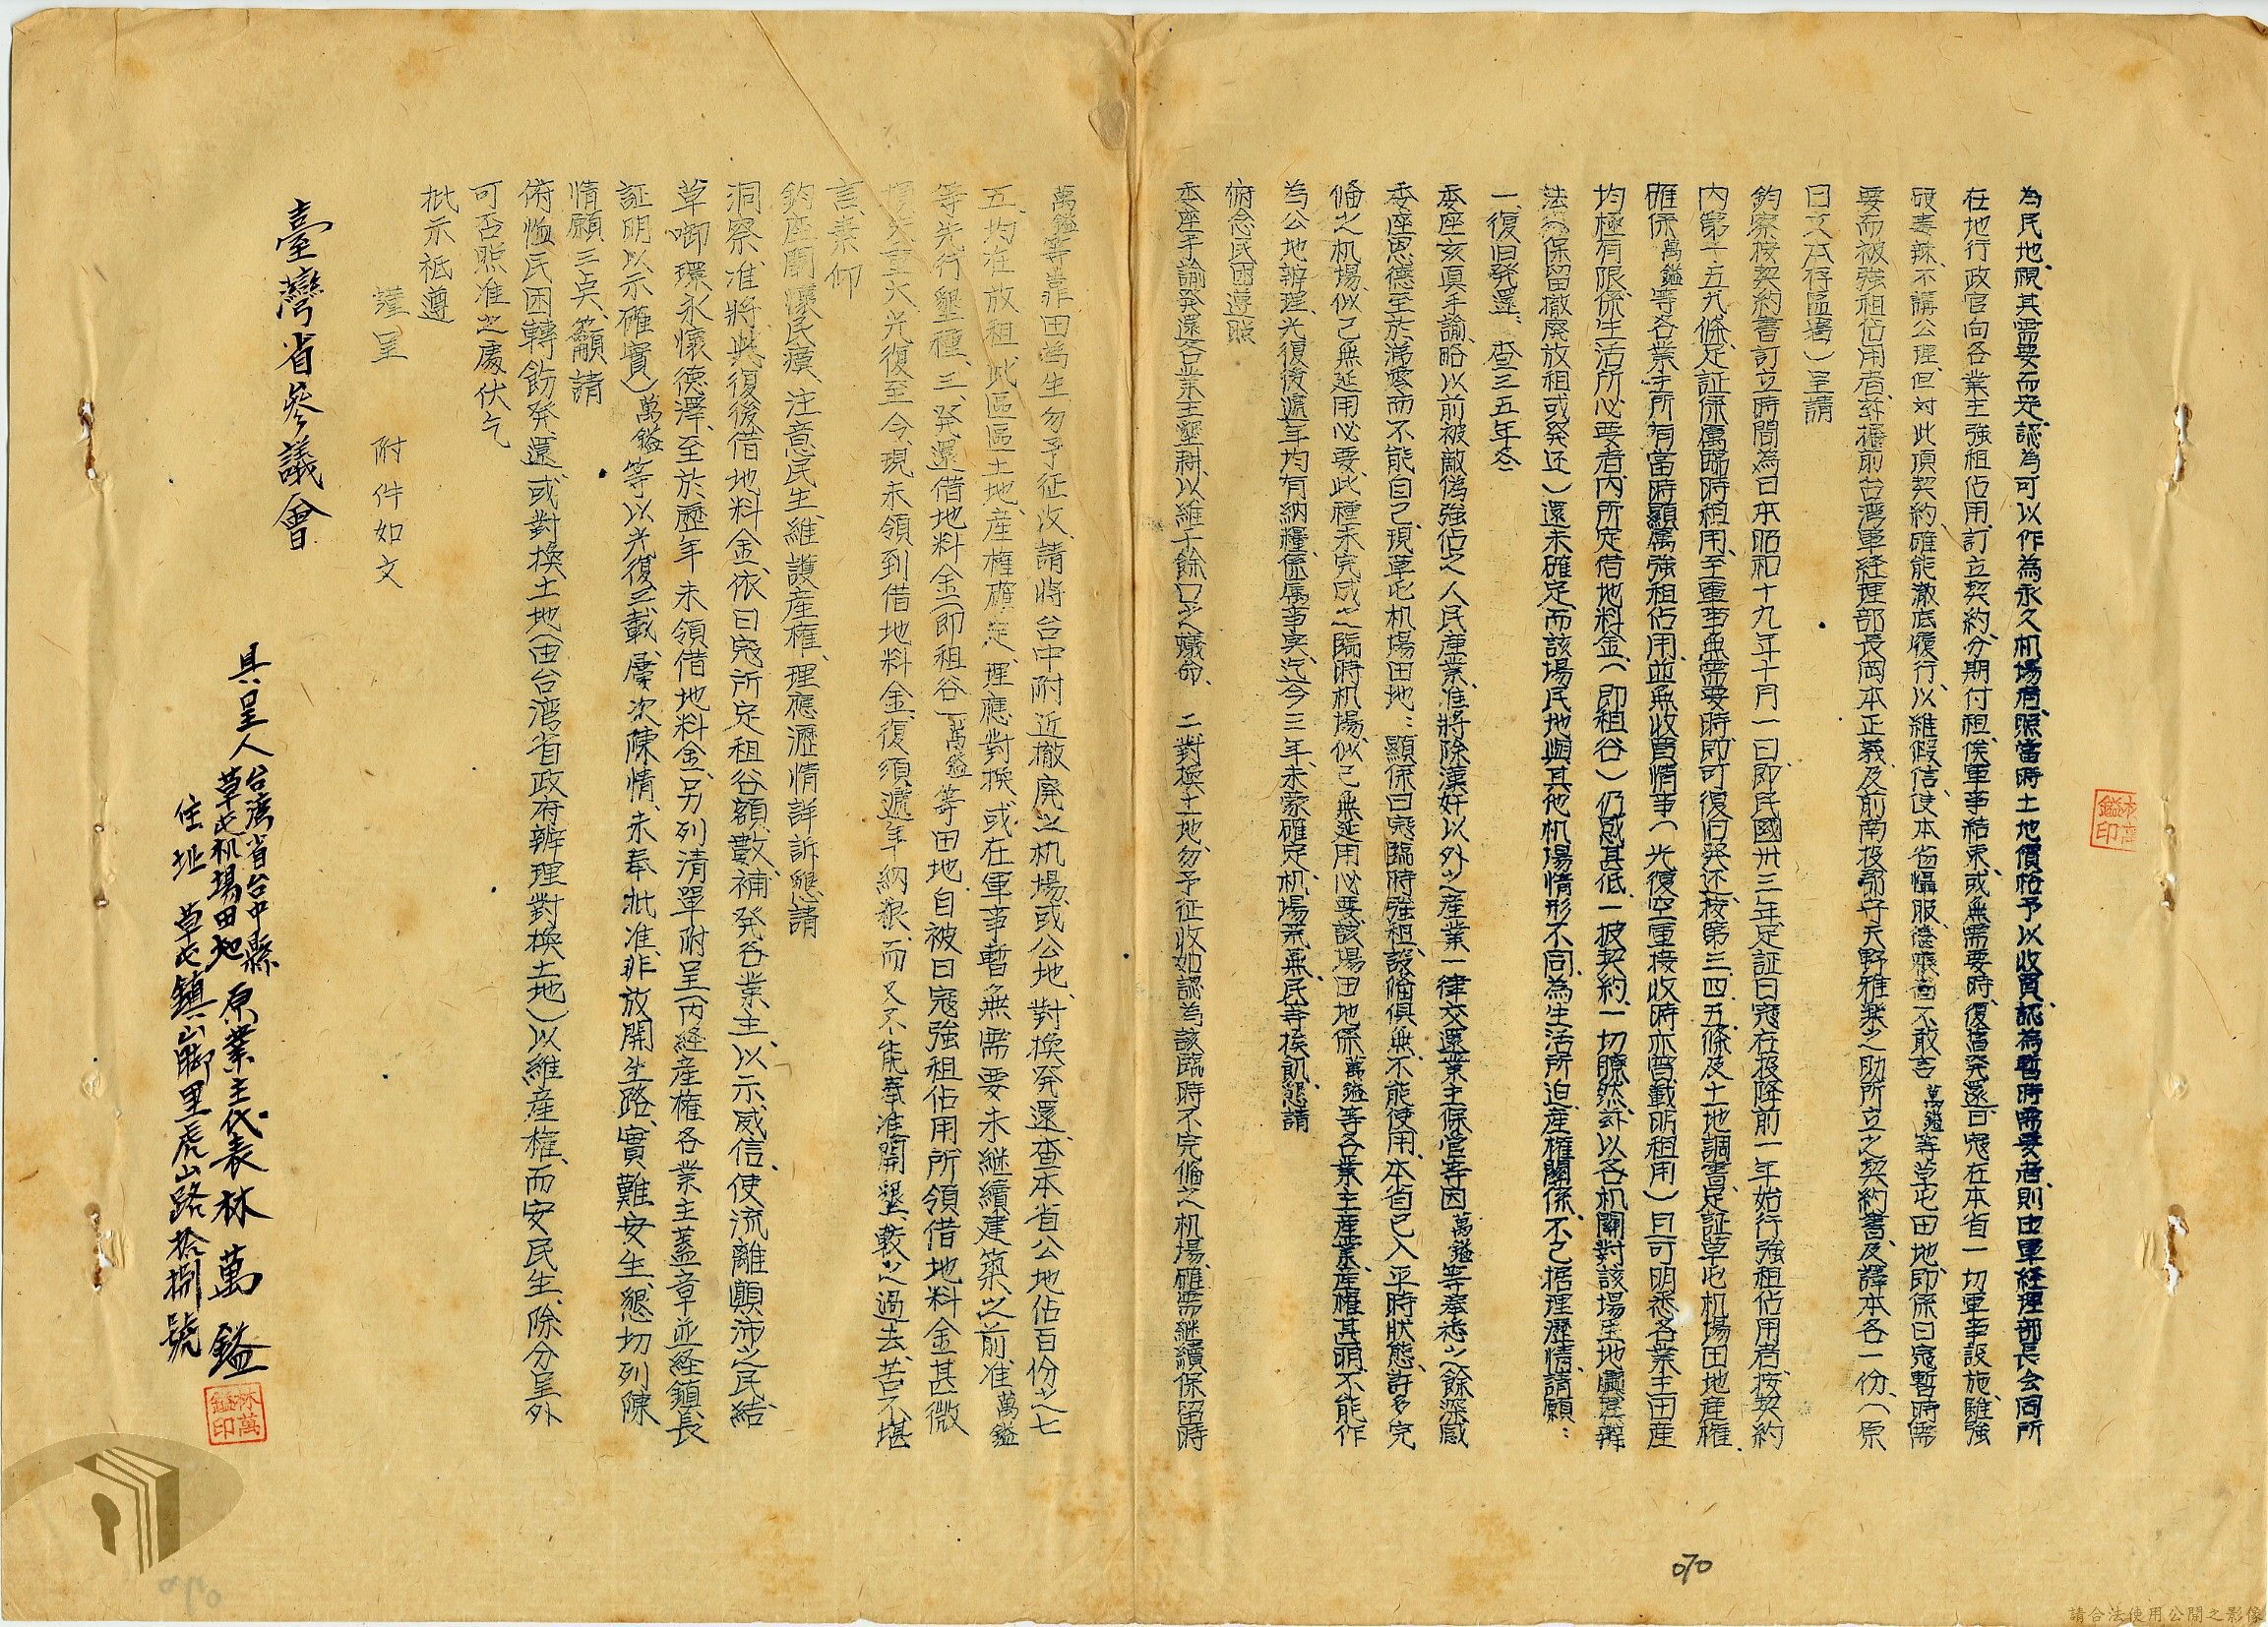 為民地、視其需要而定、認為可以作為永久机場者、照當時土地價格予以收買、認為暫時需要者、則由軍経理部長会同所
在地行政官向各業主強租佔用、訂立契約、分期付租、俟軍事結束、或無需要時、復旧発還、日寇在本省一切軍事設施、雖強
硬毒辣、不講公理、但对此項契約、確能澈底履行、以維假信、使本省懾服、不敢言 萬鎰等草屯田地、即係日寇暫時需
要而被強租佔用者、茲檢前台湾軍経理部長岡本正義及前南投郡守天野雅楽之助所立之契約書、及譯本各一份、(原
日文本存區署)呈請
鈞察、按契約書訂立時間為日本昭和十九年十月一日、即民國卅三年、足証日寇在投降前一年始行強租佔用者、按契約
内第一五九條、足証係属臨時租用、至軍事無需要時、即可復旧発还、按第三四五條及土地調書、足証草屯机場田地産權、
確係 萬鎰等各業主所有、當時顯属強租佔用、並無收買情事(光復空軍接收時亦登載所租用)且可明悉各業主田産
均極有限、係生活所必要者、内所定借地料金、(即租谷)仍感甚低、一披契約、一切瞭然、茲以各机關對該場民地處置辦
法(保留撤廃放租或発还)還未確定、而該場民地與其他机場情形不同、為生活所迫、産權關係、不已据理瀝情、請願:
一、復旧発還、 查三五年冬
委座亥真手諭、略以前被敵偽強佔之人民産業、准將除漢奸以外之産業一律交還業主保管等因 萬鎰等奉悉之餘深感
委座恩德至於涕零而不能自己、現草屯机場田地:顯係日寇臨時強租、設備俱無、不能使用、本省已入平時狀態、許多完
備之机場、似已無延用必要、此種未完成之臨時机場、似已無延用必要、該場田地係 萬鎰等各業主産業、産權甚明、不能作
為公地辦理、光復後遞年均有納糧、係属事実、迄今三年、未蒙確定、机場荒蕪、民等挨飢、懇請
俯念民困遵照
委座手諭発還各業主墾耕、以維千餘口之蟻命、 二、對換土地、勿予征收、如認為該臨時不完備之机場、確需継續保留時
萬鎰等靠田為生、勿予征收、請将台中附近撤廃之机場、或公地、對換発還、查本省公地佔百份之七
五、均在放租、此區區土地、産權確定、理應對換、或在軍事暫無需要未継續建築之前、准萬鎰
等先行墾種、三、発還借地料金(即租谷)萬鎰等田地、自被日寇強租佔用、所領借地料金甚微
損失重大、光復至今、現未領到借地料金、復須遞年納粮、而又不能奉准開墾、較之過去、苦不堪
言、素仰
鈞座關懷民瘼、注意民生、維護産權、理應瀝情詳訴、懇請
洞察、准将與復後借地料金、依日寇所定租谷額數、補発各業主、以示威信、使流離顛沛之民、結
草啣環、永懷德澤、至於歷年未領借地料金、另列清單附呈(内経産權各業主蓋章並経鎮長
証明、以示確實)萬鎰等以光復三載、屢次陳情、未奉批准、非放開生路、實難安生、懇切列陳
情願三点、籲請
俯恤民困轉飭発還、或對換土地(由台湾省政府辦理對換土地)以維産權、而安民生、除分呈外
可否照准之處伏乞
批示祗遵
謹呈 附件如文
臺灣省參議會
具呈人 台湾省台中縣草屯机場田地 原業主代表 林萬鎰
住址 草屯鎮山脚里虎山路拾捌號
林萬鎰印
070
請合法使用公開之影像